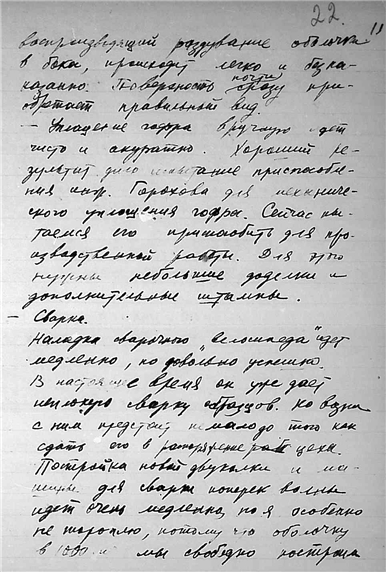 22.
воспроизводящий раздувание оболочки
в бока, происходит легко и безна-
казанно. Поверхность почти сразу при-
обретает правильный вид.
— Уплощение гофра вручную идет
чисто и аккуратно. Хороший ре-
зультат дало испытание приспособле-
ния инж. Горохова для механиче-
ского уплощения гофра. Сейчас пы-
таемся его приспособить для про-
изводственной работы. Для этого
нужны небольшие доделки и
дополнительные штампы.
— Сварка.
Наладка сварочного „велосипеда" идет
медленно, но довольно успешно.
В настоящее время он уже дает
неплохую сварку образцов. Но возни
с ним предстоит немало до того как
сдать его в распоряжение цеха.
Постройка новой двуколки и ма-
шины для сварки поперек волны
идет очень медленно, но я особенно
не тороплю, потому что оболочку
в 1000 мы свободно построим